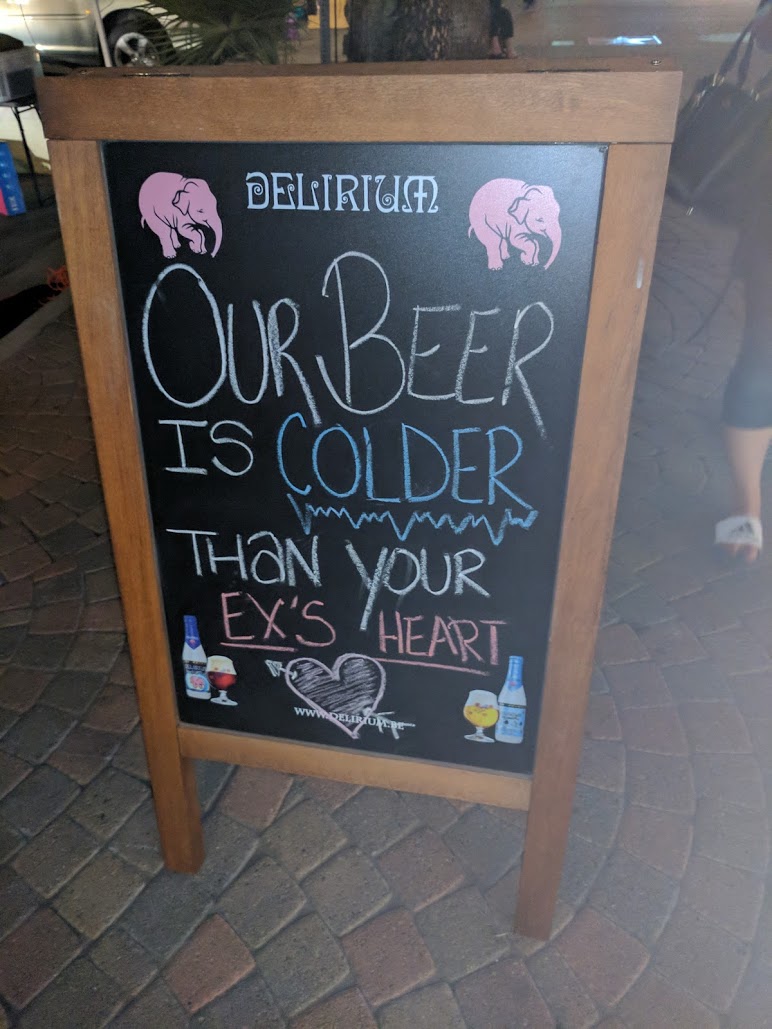 DELIRIUM
OUR BEER
IS COLDER
THAN YOUR
EX'S HEART
WWW.DELIRIUM.BE